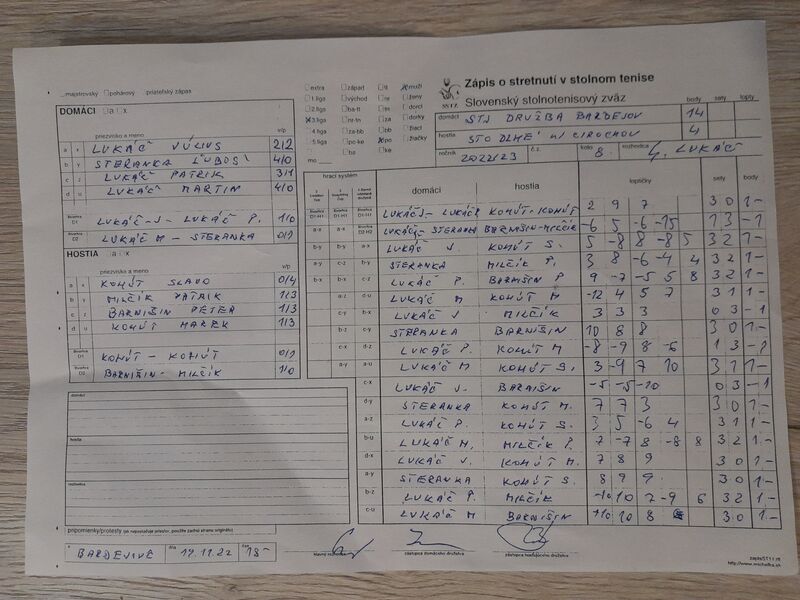 majstrovský pohárový priateľský zápas
DOMÁCI a x
priezvisko a meno v/p
a x LUKÁČ JÚLIUS 2/2
b y STERANKA ĽUBOŠ 4/0
c z LUKÁČ PATRIK 3/1
d u LUKÁČ MARTIN 4/0
D1 LUKÁČ-J - LUKÁČ P. 1/0
D2 LUKÁČ M - STERANKA 0/1
HOSTIA a x
priezvisko a meno v/p
a x KOHÚT SLAVO 0/4
b y MILČÍK PATRIK 1/3
c z BARNIŠIN PETER 1/3
d u KOHÚT MAREK 1/3
D1 KOHÚT - KOHÚT 0/1
D2 BARNIŠIN - MILČÍK 1/0
domáci
hostia
rozhodca
pripomienky/protesty (ak nepostačuje priestor, použite zadnú stranu originálu)
v BARDEJOVE dňa 19.11.22 čas 15-
extra západ tt muži
1.liga východ nr ženy
2.liga ba-tt es dorci
3.liga nr-tn za dorky
4.liga za-bb bb žiaci
5.liga po-ke po žiačky
ba ke
mo
SSTZ
Zápis o stretnutí v stolnom tenise
Slovenský stolnotenisový zväz body sety lopty
domáci STJ DRUŽBA BARDEJOV 14
hostia STO DLHÉ n/ CIROCHOU 4
ročník 2022/23 č.z. kolo 8. rozhodca LUKÁČ
hrací systém domáci hostia loptičky sety body
LUKÁČ J - LUKÁČ P KOHÚT-KOHÚT 2 9 7 3 0 1 -
LUKÁČ - STERANKA BARNIŠIN-MILČÍK -6 5 -6 -15 1 3 -1
b-y a-x LUKÁČ J. KOHÚT S. 5 -8 8 -8 5 3 2 1 -
a-y c-z b-y STERANKA MILČÍK P. 3 8 -6 -4 4 3 2 1 -
b-x a-x c-z LUKÁČ P. BARNIŠIN P. 9 -7 -5 5 8 3 2 1 -
a-z d-u LUKÁČ M KOHÚT M -12 4 5 7 3 1 1 -
c-y b-x LUKÁČ J MILČÍK 3 3 3 0 3 -1
b-z c-y STERANKA BARNIŠIN 10 8 8 3 0 1 -
c-x d-z LUKÁČ P. KOHÚT M -8 -9 8 -6 1 3 -1
a-y a-u LUKÁČ M KOHÚT S. 3 -9 7 10 3 1 1 -
c-x LUKÁČ J. BARNIŠIN -5 -5 -10 0 3 -1
d-y STERANKA KOHÚT M. 7 7 3 3 0 1 -
a-z LUKÁČ P. KOHÚT S. 3 5 -6 4 3 1 1 -
b-u LUKÁČ M. MILČÍK P. 7 -7 8 -8 8 3 2 1 -
d-x LUKÁČ J. KOHÚT M. 7 8 9 3 0 1 -
a-y STERANKA KOHÚT S. 8 9 9 3 0 1 -
b-z LUKÁČ P. MILČÍK -10 10 7 -9 6 3 2 1 -
c-u LUKÁČ M BARNIŠIN 10 10 8 3 0 1 -
hlavný rozhodca zástupca domáceho družstva zástupca hosťujúceho družstva
http://www.michalka.sk